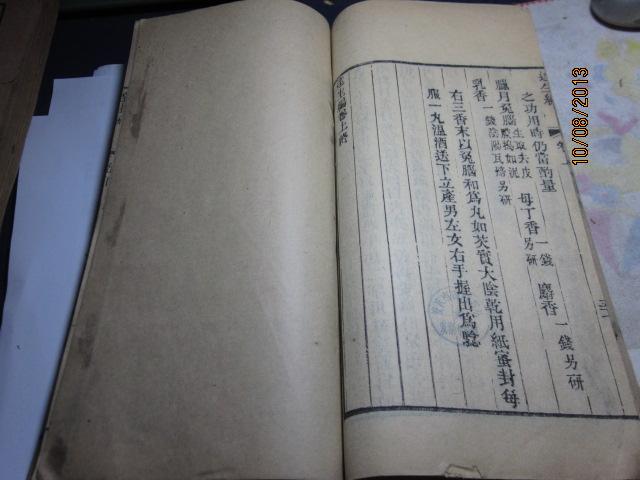 達生編
之功用時仍當酌量
臘月兔腦 生取去皮 膜搗如泥 母丁香 一錢 另研 麝香 一錢另研
乳香 一錢陰陽瓦焙另研
右三香末以兔腦和為丸如芡實大陰乾用紙蜜封每
服一丸溫酒送下立產男左女右手握出為驗
達生編卷上終
10/08/2013